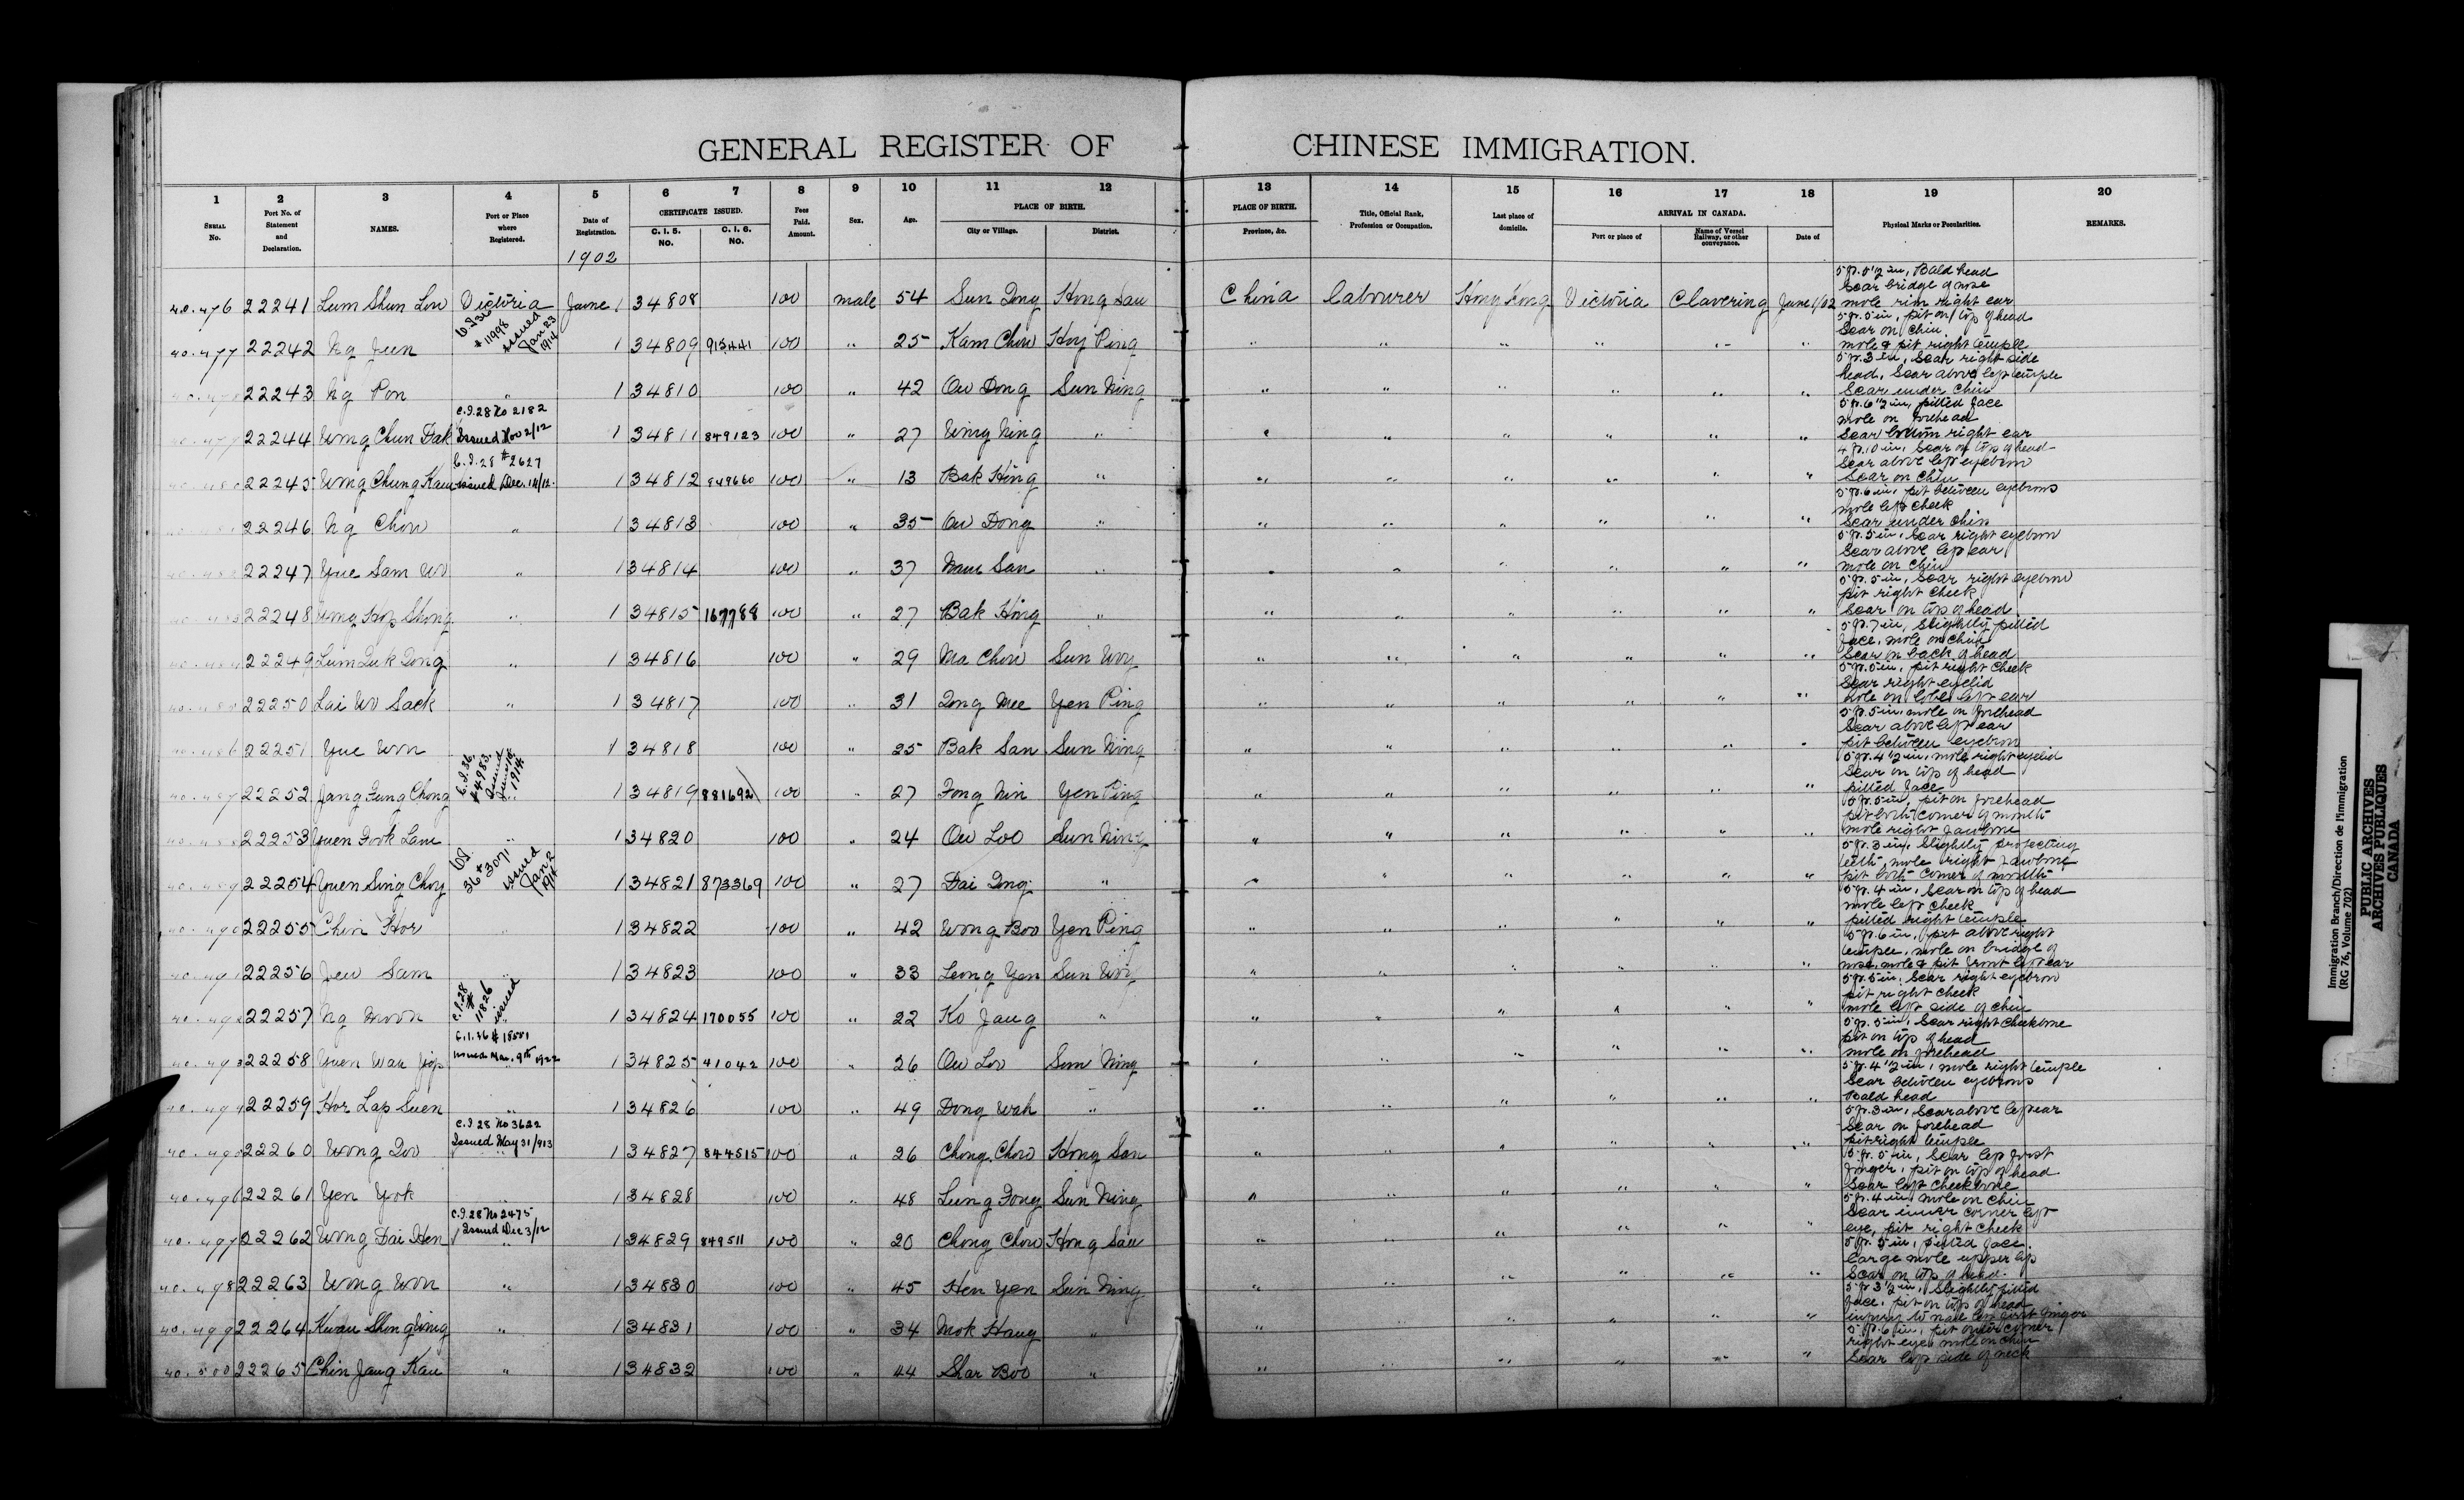 GENERAL REGISTER OF CHINESE IMMIGRATION.
1 2 3 4 5 6 7 8 9 10 11 12 13 14 15 16 17 18 19 20
SERIAL No. Port No. of Statement and Declaration. NAMES. Port or Place where Registered. Date of Registration. CERTIFICATE ISSUED. C. I. 5. NO. C. I. 6. NO. Fees Paid. Amount. Sex. Age. PLACE OF BIRTH. City or Village. District. PLACE OF BIRTH. Province, &c. Title, Official Rank, Profession or Occupation. Last place of domicile. ARRIVAL IN CANADA. Port or place of Name of Vessel Railway, or other conveyance. Date of Physical Marks or Peculiarities. REMARKS.
1902
40.476 22241 Lum Shun Low Victoria June 1 34808 100 male 54 Sun Tong Hong San China labourer Hong Kong Victoria Clavering June 1/02 5 ft. 0 1/2 in, Bald head
Scar bridge of nose
mole rim right ear
C.I.36 # 11998 issued Jan 23 1914
40.477 22242 Ng Jeen 1 34809 915441 100 " 25 Kam Chow Hoy Ping " " " " " " 5 ft. 5 in, pit on top of head
Scar on chin
mole & pit right temple
22243 Ng Pon " 1 34810 100 " 42 Ow Dong Sun Ning " " " " " " 5 ft. 3 in, Scar right side
head, Scar above left temple
Scar under chin
C.I.28 No 2182
Issued Nov 2/12
22244 Wong Chun Dak 1 34811 849123 100 " 27 Wing Ning " " " " " " " 5 ft. 6 1/2 in, pitted face
mole on forehead
Scar bottom right ear
C.I.28 # 2627
issued Dec. 14/12.
22245 Wong Chung Kau 1 34812 849660 100 " 13 Bak Hing " " " " " " " 4 ft. 10 in, Scar on top of head
Scar above left eyebrow
Scar on chin
22246 Ng Chow " 1 34813 100 " 35 Ow Dong " " " " " " " 5 ft. 6 in, pit between eyebrows
mole left cheek
Scar under chin
22247 Yue Sam Wo " 1 34814 100 " 37 Nam San " " " " " " " 5 ft. 5 in, Scar right eyebrow
Scar above left ear
mole on chin
22248 Wong Hop Shong " 1 34815 167788 100 " 27 Bak Hing " " " " " " " 5 ft. 5 in, Scar right eyebrow
pit right cheek
Scar on top of head
22249 Lum Duk Dong " 1 34816 100 " 29 Ma Chow Sun Woy " " " " " " 5 ft. 7 in, Slightly pitted
face, mole on chin
Scar on back of head
22250 Lai Wo Sack " 1 34817 100 " 31 Dong Mee Yen Ping " " " " " " 5 ft. 5 in, pit right cheek
Scar right eyelid
mole on lobe left ear
40.486 22251 Yue Won 1 34818 100 " 25 Bak San Sun Ning " " " " " " 5 ft. 5 in, mole on forehead
Scar above left ear
pit between eyebrows
C.I.36 #4983 1914
40.487 22252 Jang Fung Chong 1 34819 881692 100 " 27 Fong Nin Yen Ping " " " " " " 5 ft. 4 1/2 in, mole right eyelid
Scar on top of head
pitted face
22253 Yuen Fook Lam " 1 34820 100 " 24 Ow Loo Sun Ning " " " " " " 5 ft. 5 in, pit on forehead
pit both corner of mouth
mole right jawbone
36 # 3071 issued Jan 2
22254 Yuen Sing Choy 1 34821 873369 100 " 27 Dai Dong " " " " " " " 5 ft. 3 in, Slightly projecting
teeth, mole right jawbone
pit both corner of mouth
40.490 22255 Chin Hor " 1 34822 100 " 42 Wong Boo Yen Ping " " " " " " 5 ft. 4 in, Scar on top of head
mole left cheek
pitted right temple
40.491 22256 Jew Sam " 1 34823 100 " 33 Leong Yen Sun Woy " " " " " " 5 ft. 6 in, pit above right
temple, mole on bridge of
nose, mole & pit front left ear
C.I.28 # 11826 issued
40.492 22257 Ng Moon 1 34824 170055 100 " 22 Ko Jang " " " " " " " 5 ft. 5 in, Scar right eyebrow
pit right cheek
mole left side of chin
C.I.36 # 18501
issued Mar. 9th 1922
40.493 22258 Yuen War Jop 1 34825 41042 100 " 26 Ow Loo Sun Ning " " " " " " 5 ft. 5 in, Scar right cheekbone
pit on top of head
mole on forehead
40.494 22259 Hor Lap Suen " 1 34826 100 " 49 Dong Wah " " " " " " " 5 ft. 4 1/2 in, mole right temple
Scar between eyebrows
Bald head
C.I.28 No 3622
Issued May 31/913
40.495 22260 Wong Doo 1 34827 844515 100 " 26 Chong Chow Hong San " " " " " " 5 ft. 3 in, Scar above left ear
Scar on forehead
pit right temple
40.496 22261 Yen Yook " 1 34828 100 " 48 Lung Fong Sun Ning " " " " " " 5 ft. 5 in, Scar left first
finger, pit on top of head
Scar left cheekbone
C.I.28 No 2475
Issued Dec 3/12
40.497 22262 Wong Dai Hen 1 34829 849511 100 " 20 Chong Chow Hong San " " " " " " 5 ft. 4 in, mole on chin
Scar inner corner left
eye, pit right cheek
40.498 22263 Wong Won " 1 34830 100 " 45 Hen Yen Sun Ning " " " " " " 5 ft. 5 in, pitted face.
Large mole upper lip
Scar on top of head.
40.499 22264 Kwan Shong Wing " 1 34831 100 " 34 Mok Hang " " " " " " " 5 ft. 3 1/2 in, Slightly pitted
face, pit on top of head
injury to nail left first finger
40.500 22265 Chin Jang Kau " 1 34832 100 " 44 Shar Boo " " " " " " " 5 ft. 6 in, pit outer corner
right eye, mole on chin
Scar left side of neck
Immigration Branch/Direction de l'immigration
(RG 76, Volume 702)
PUBLIC ARCHIVES
ARCHIVES PUBLIQUES
CANADA